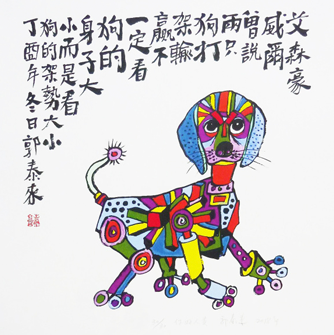 艾森豪
威爾
曾說
兩只
狗打
架輸
贏不
一定看
狗的
身子大
小而是看
狗的架勢大小
丁酉年冬日郭泰來